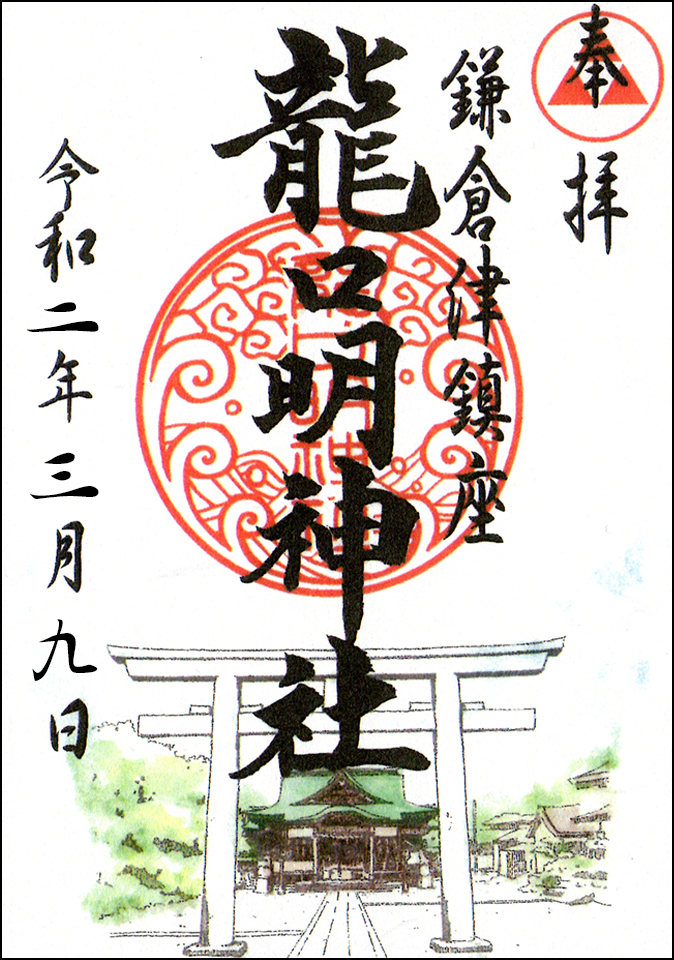 奉拝
鎌倉津鎮座
龍口明神社
令和二年三月九日